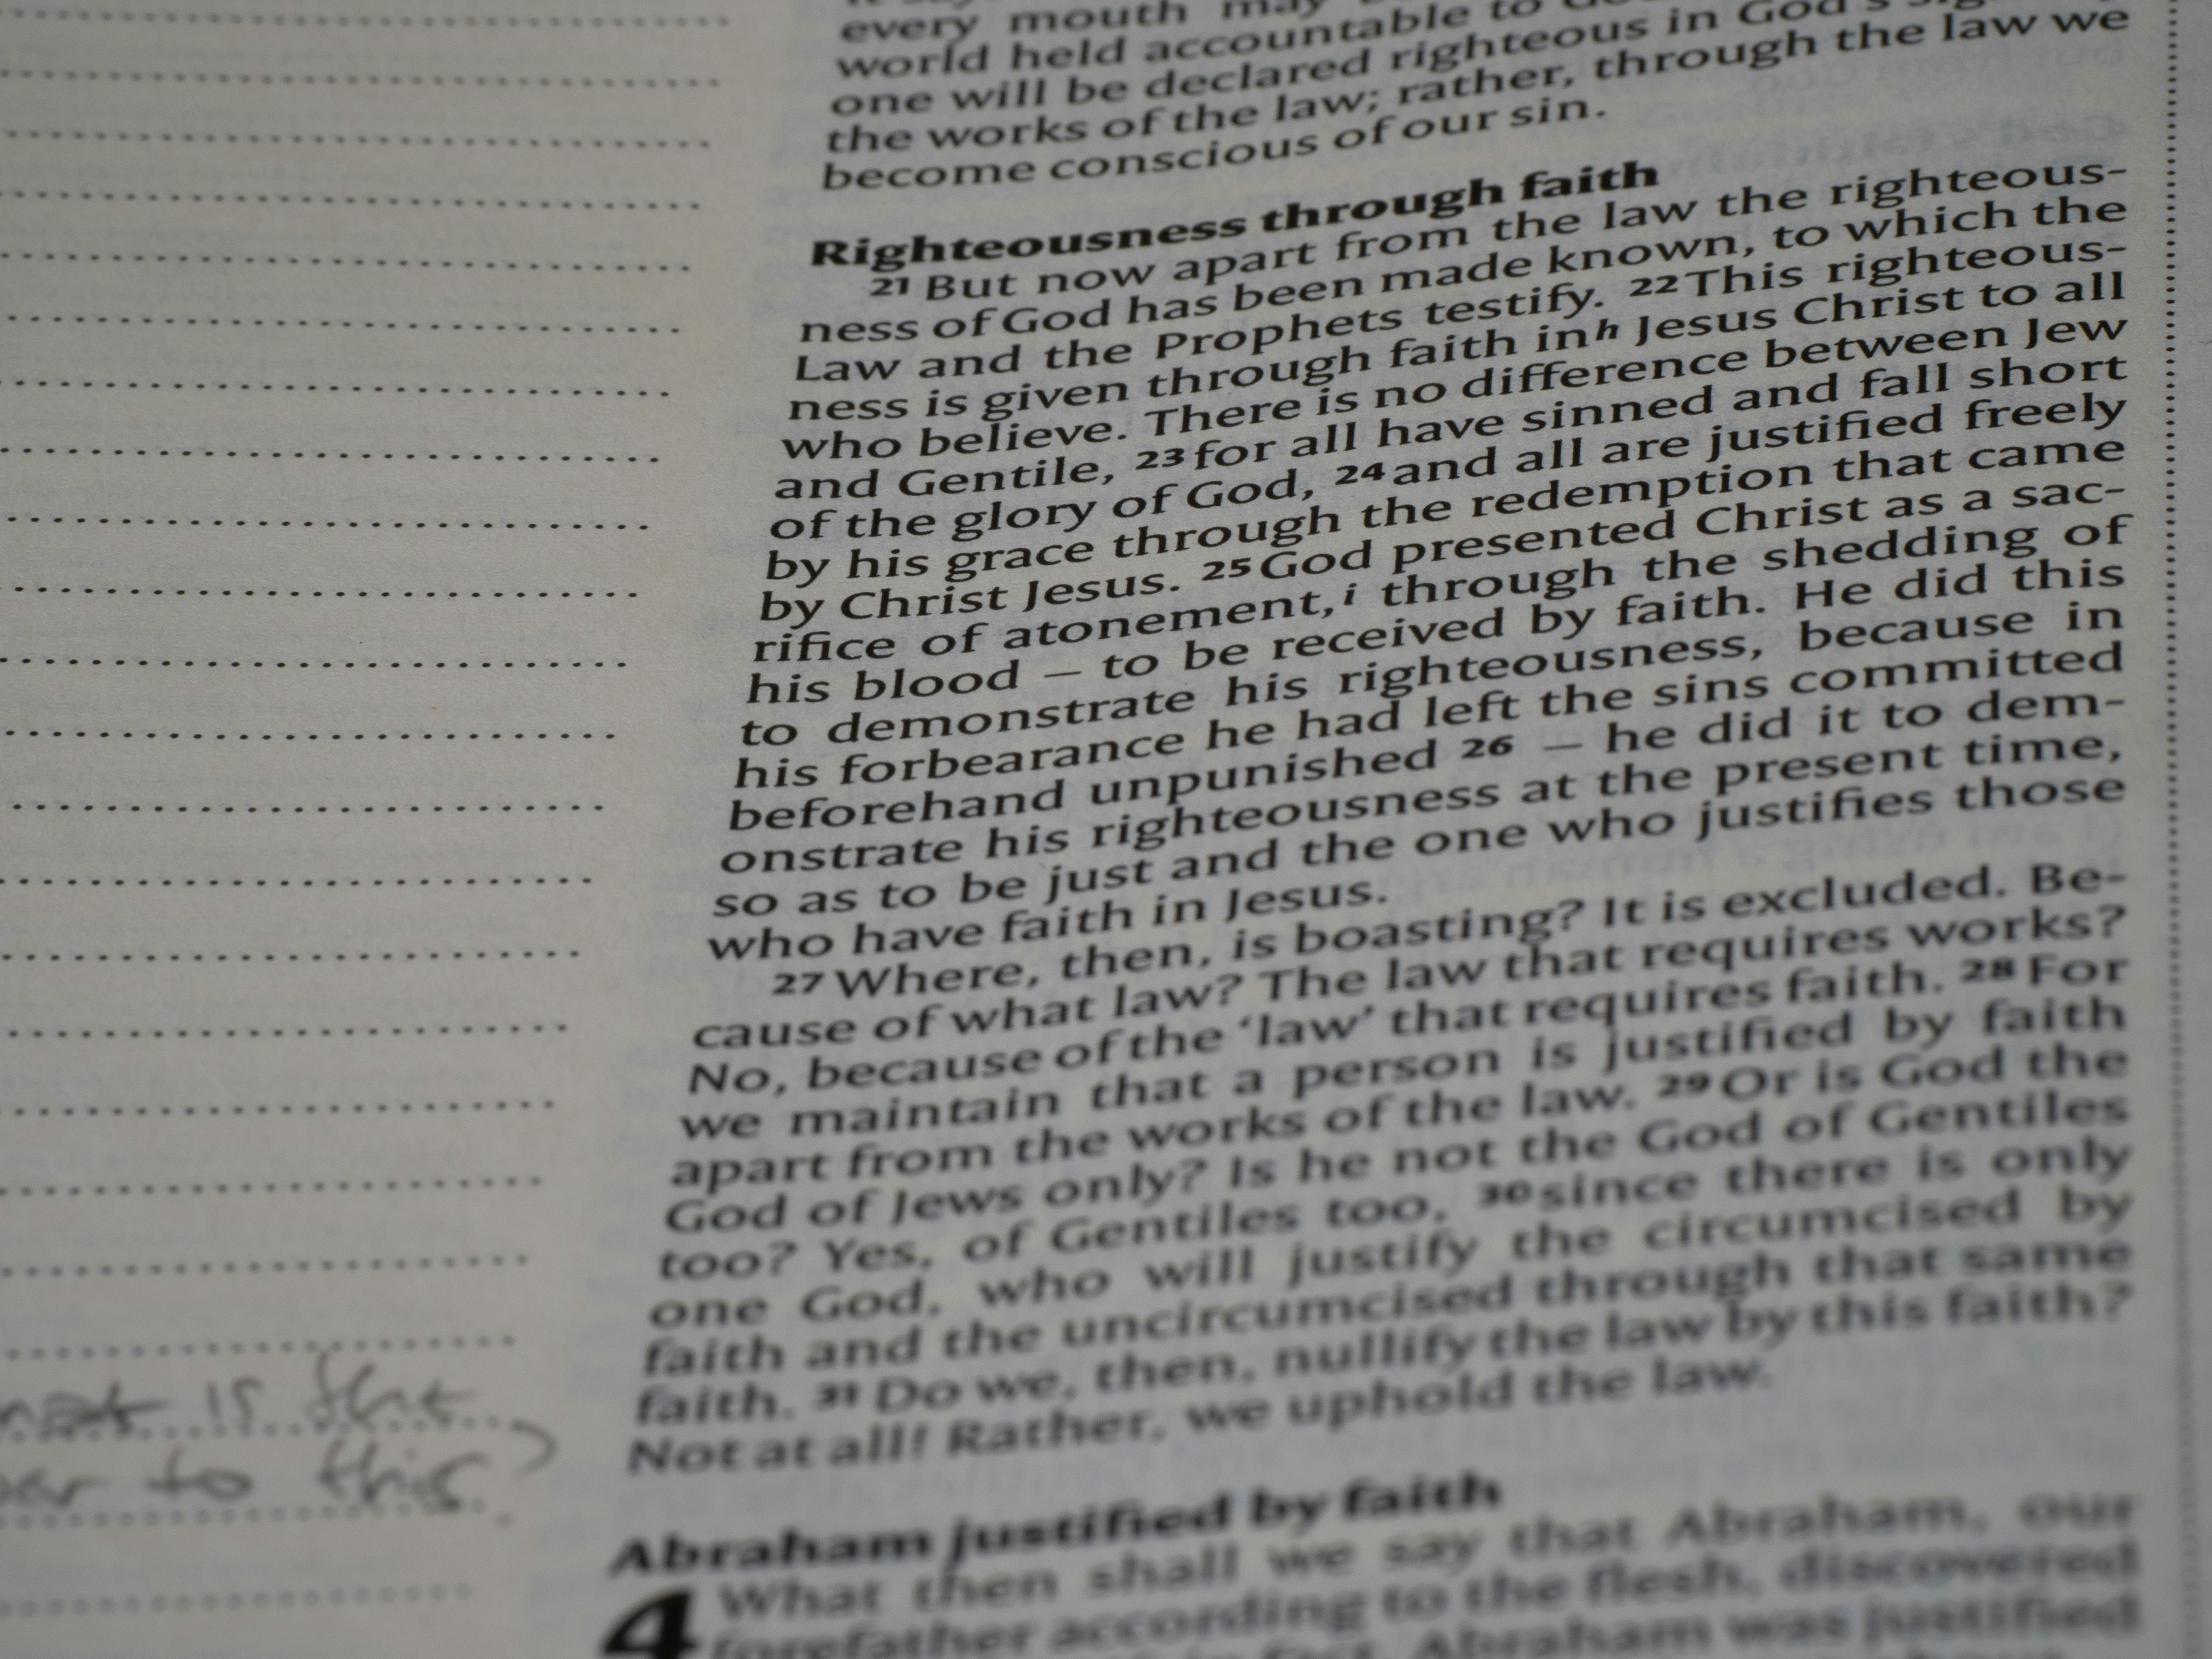 every mouth may
world held accountable to
one will be declared righteous in God's
the works of the law; rather, through the law we
become conscious of our sin.
Righteousness through faith
21 But now apart from the law the righteous-
ness of God has been made known, to which the
Law and the Prophets testify. 22 This righteous-
ness is given through faith in h Jesus Christ to all
who believe. There is no difference between Jew
and Gentile, 23 for all have sinned and fall short
of the glory of God, 24 and all are justified freely
by his grace through the redemption that came
by Christ Jesus. 25 God presented Christ as a sac-
rifice of atonement, i through the shedding of
his blood – to be received by faith. He did this
to demonstrate his righteousness, because in
his forbearance he had left the sins committed
beforehand unpunished 26 – he did it to dem-
onstrate his righteousness at the present time,
so as to be just and the one who justifies those
who have faith in Jesus.
27 Where, then, is boasting? It is excluded. Be-
cause of what law? The law that requires works?
No, because of the ‘law’ that requires faith. 28 For
we maintain that a person is justified by faith
apart from the works of the law. 29 Or is God the
God of Jews only? Is he not the God of Gentiles
too? Yes, of Gentiles too, 30 since there is only
one God, who will justify the circumcised by
faith and the uncircumcised through that same
faith. 31 Do we, then, nullify the law by this faith?
Not at all! Rather, we uphold the law.
is the
to this?
Abraham justified by faith
4 What then shall we say that Abraham, our
forefather according to the flesh, discovered
Abraham was justified